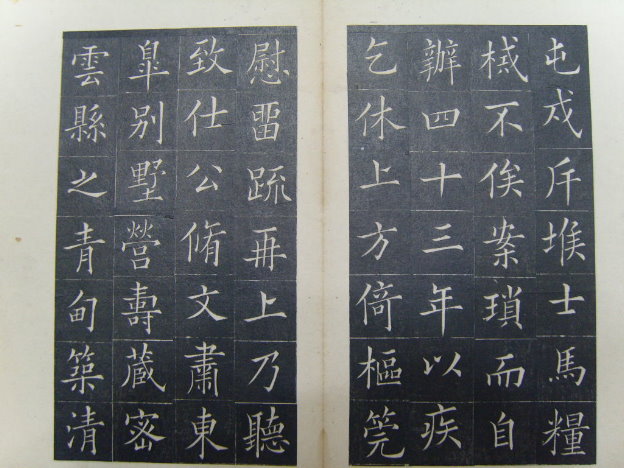 屯戍斥堠士馬糧
械不俟案瑣而自
辦四十三年以疾
乞休上方倚樞筦
慰畱疏再上乃聽
致仕公脩文肅東
臯別墅營壽蔵密
雲縣之青甸築清